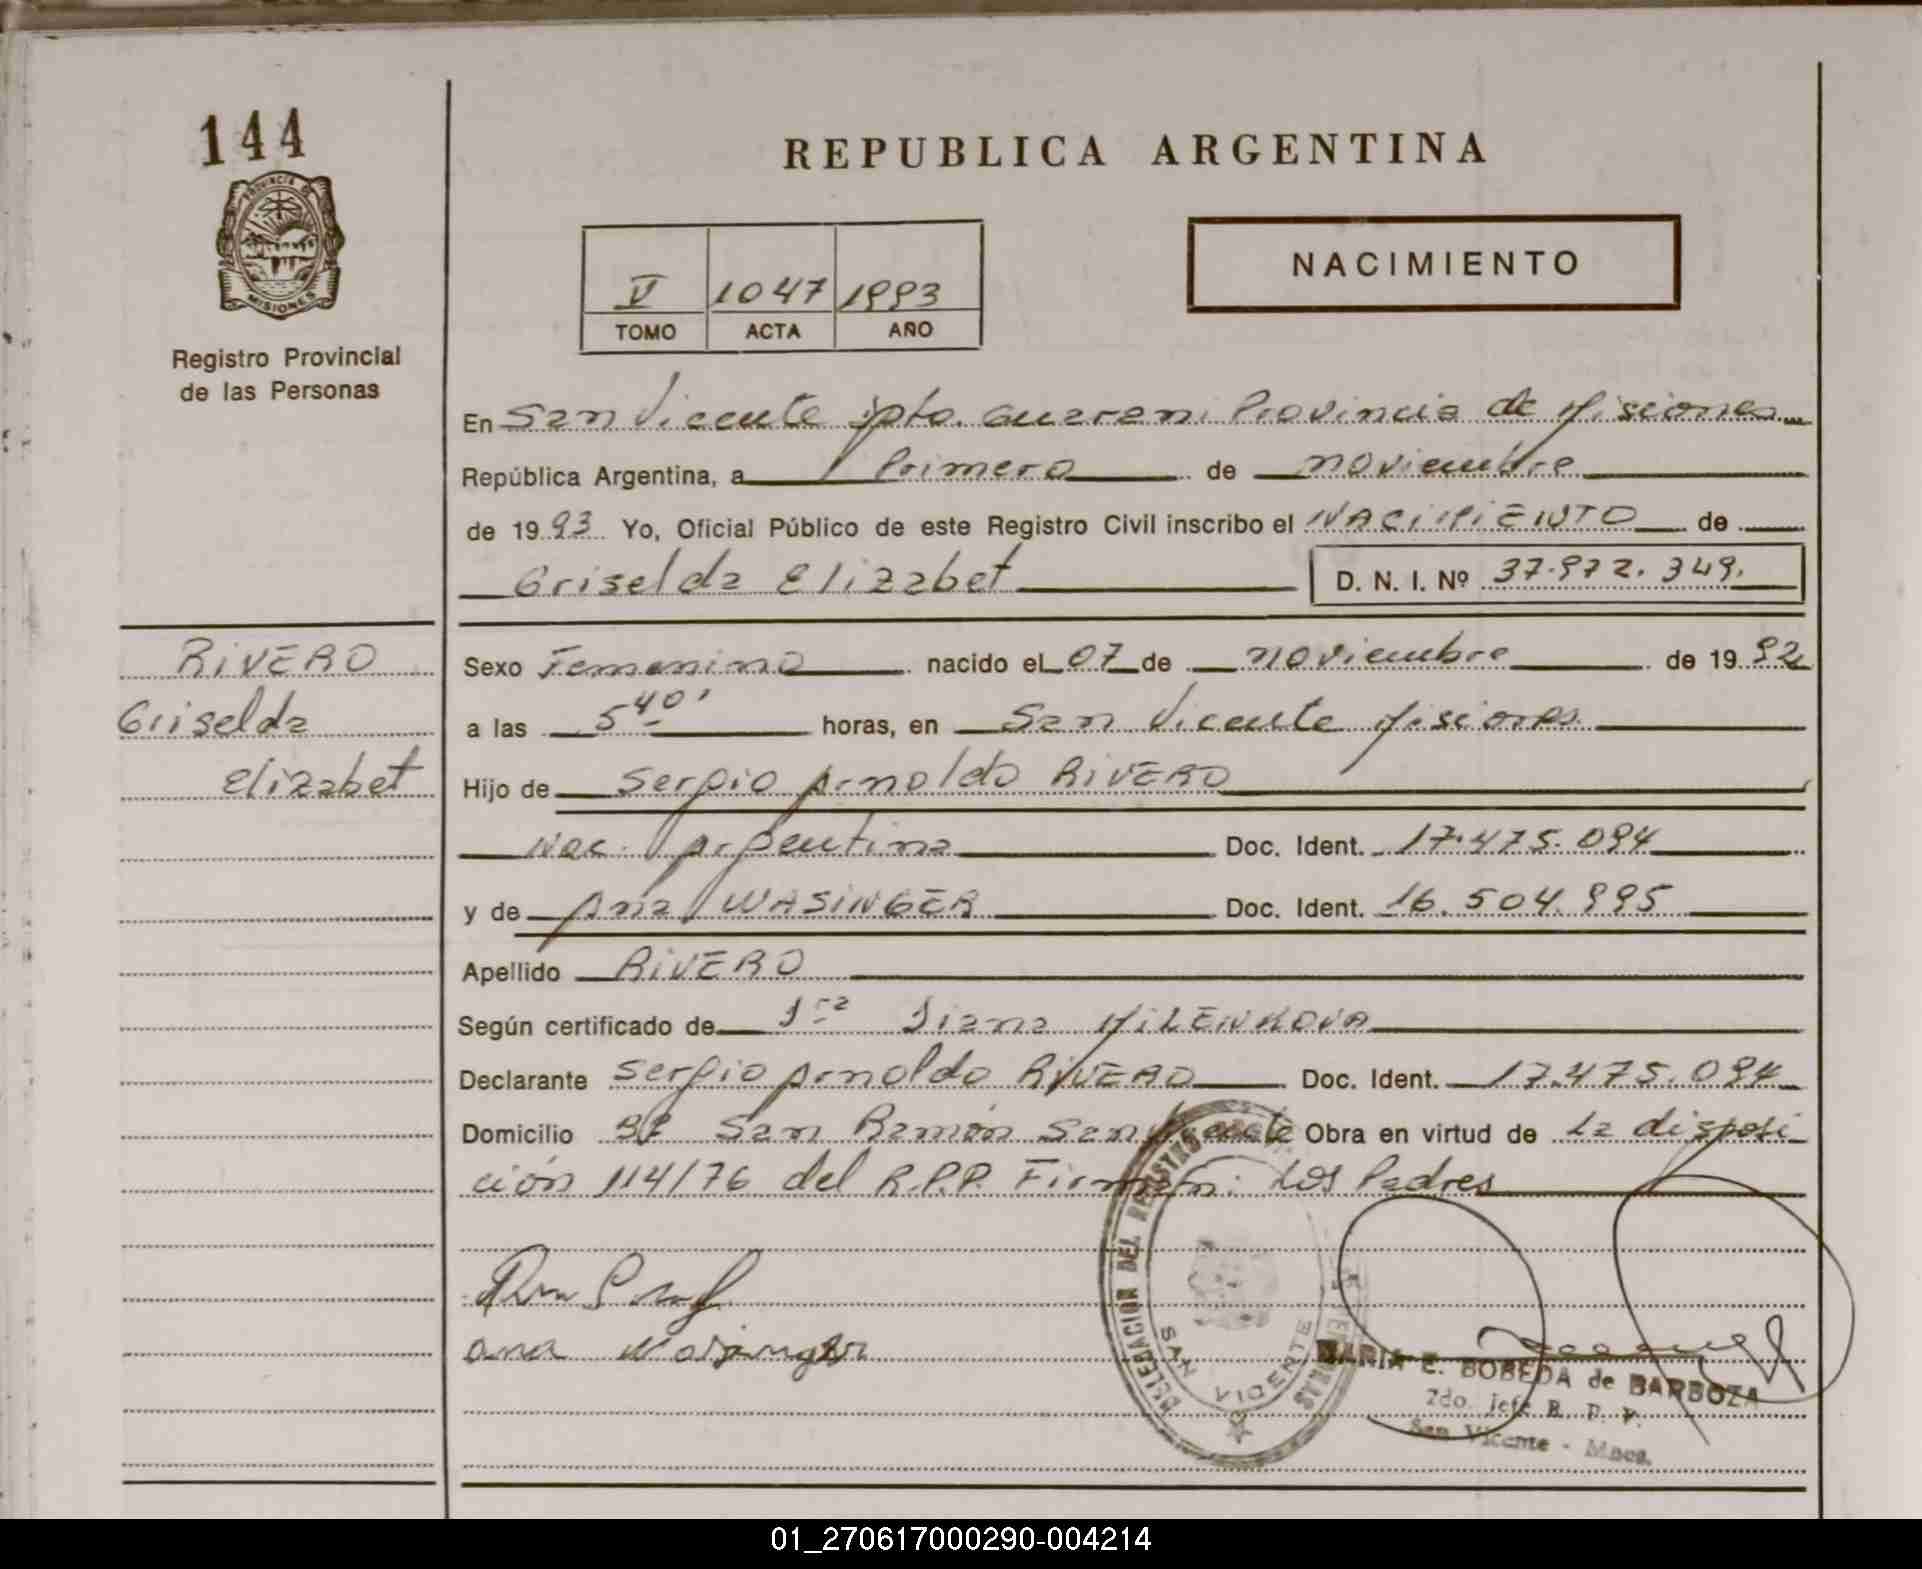 144
PROVINCIA DE
MISIONES
Registro Provincial
de las Personas
REPUBLICA ARGENTINA
NACIMIENTO
V 1047 1993
TOMO ACTA AÑO
En San Vicente Dpto. Guarani Provincia de Misiones
República Argentina, a Primero de noviembre
de 1993 Yo, Oficial Público de este Registro Civil inscribo el NACIMIENTO de
Griselda Elizabet D. N. I. Nº 37.972.349.
RIVERO
Griselda
Elizabet
Sexo Femenino nacido el 07 de noviembre de 1992
a las 5 40' horas, en San Vicente Misiones
Hijo de Sergio Arnoldo RIVERO
Nac. Argentina Doc. Ident. 17.475.094
y de Ana WASINGER Doc. Ident. 16.504.995
Apellido RIVERO
Según certificado de Dra Diana MILENKOVA
Declarante Sergio Arnoldo RIVERO Doc. Ident. 17.475.094
Domicilio Bº San Ramón San Vicente Obra en virtud de la disposi
ción 114/76 del R.P.P. Firman: Los Padres
ana Wasinger
DELEGACION DEL REGISTRO
SAN VICENTE
MARIA E. BOBEDA de BARBOZA
2do. jefe R. P. P.
San Vicente - Mnes.
01_270617000290-004214